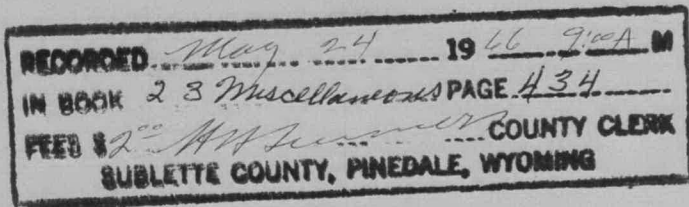 RECORDED May 24 1966 9:00 A M
IN BOOK 23 Miscellaneous PAGE 434
FEES $2.00 COUNTY CLERK
SUBLETTE COUNTY, PINEDALE, WYOMING